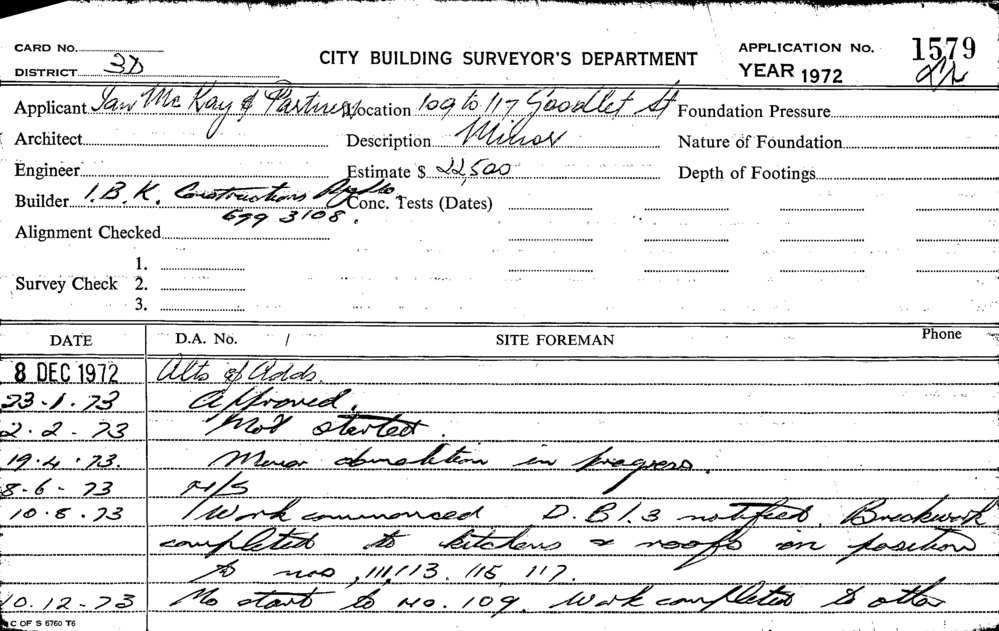 CARD NO.
DISTRICT 3D
CITY BUILDING SURVEYOR'S DEPARTMENT
APPLICATION No. 1579
YEAR 1972
Applicant Ian McKay & Partners Location 109 to 117 Goodlet St Foundation Pressure
Architect Description Minor Nature of Foundation
Engineer Estimate $ 22,500 Depth of Footings
Builder I.B.K. Constructions Conc. Tests (Dates)
699 3108.
Alignment Checked
1.
Survey Check 2.
3.
DATE D.A. No. / SITE FOREMAN Phone
8 DEC 1972 Alts & Adds.
23.1.73 Approved.
2.2.73 Not started.
19.4.73. Minor demolition in progress.
8-6-73 N/S
10.8.73 Work commenced D.B.1.3 notified. Brickwork
completed to kitchens & roofs in position
to nos 111, 113. 115, 117.
10.12-73 No start to no. 109. Work completed to other
C OF S 6760 T6